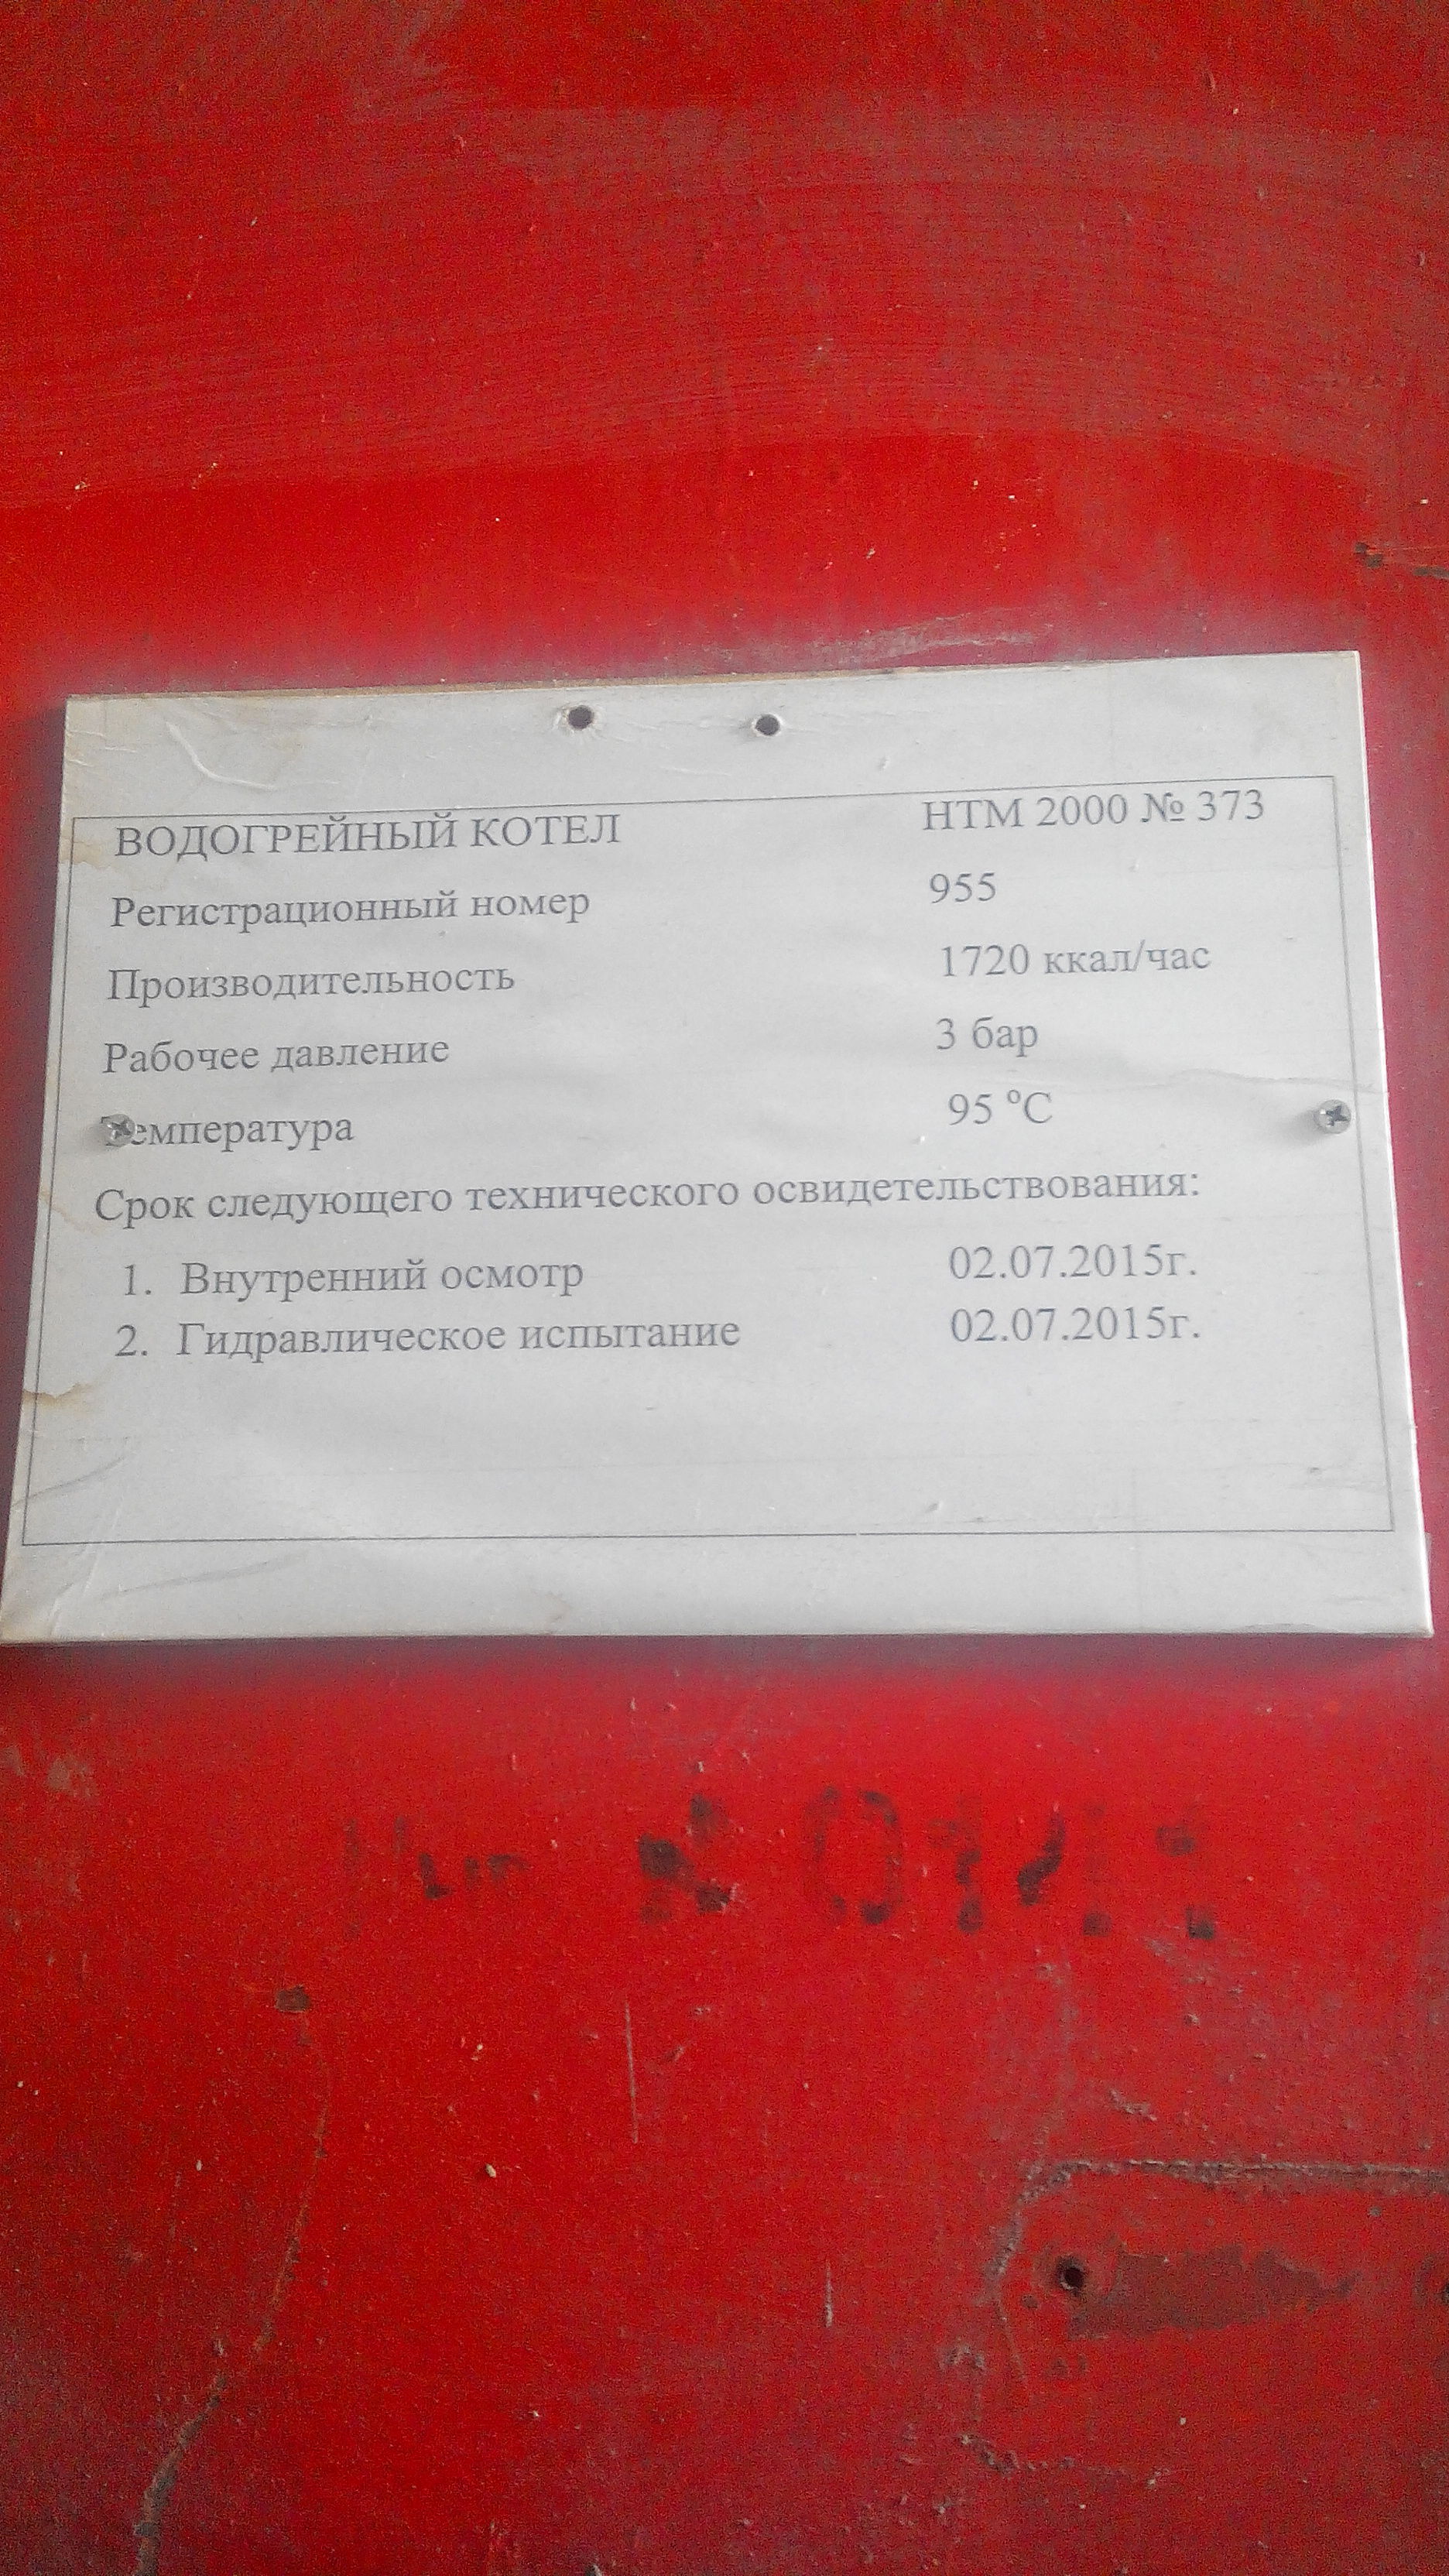 ВОДОГРЕЙНЫЙ КОТЕЛ НТМ 2000 № 373
Регистрационный номер 955
Производительность 1720 ккал/час
Рабочее давление 3 бар
Температура 95 ºС
Срок следующего технического освидетельствования:
1. Внутренний осмотр 02.07.2015г.
2. Гидравлическое испытание 02.07.2015г.